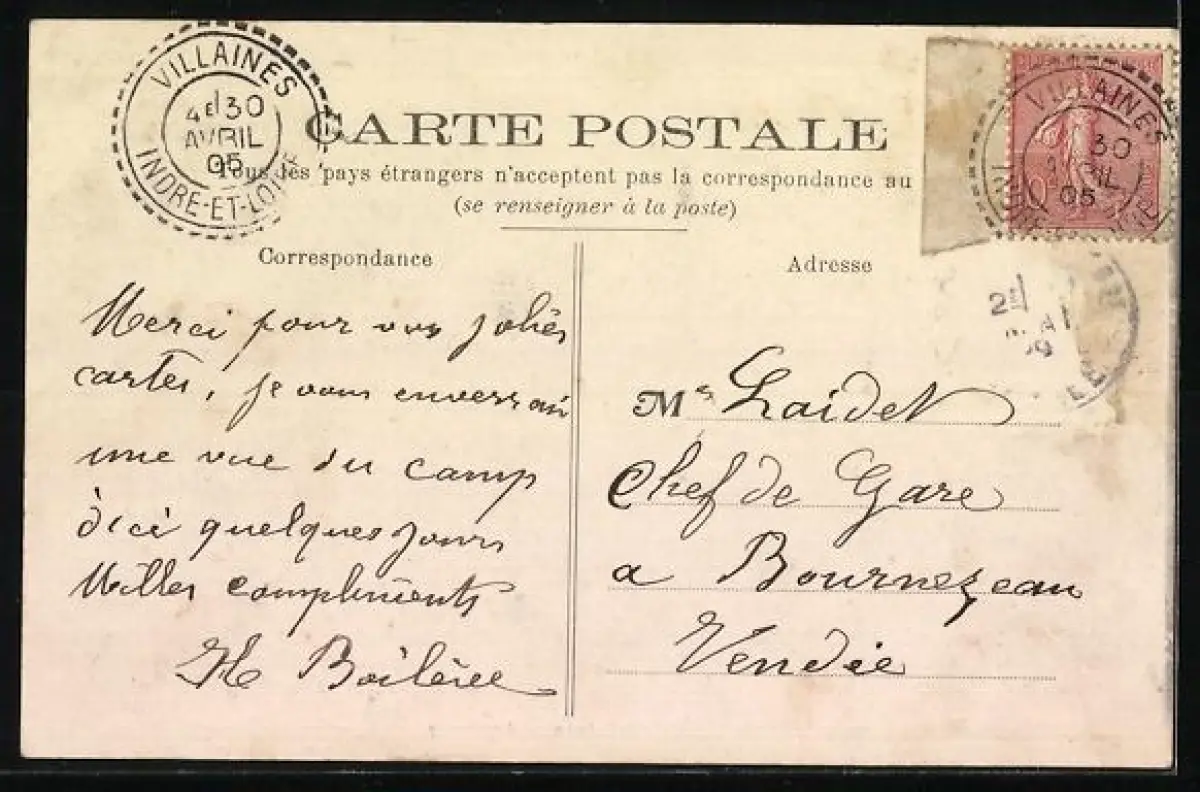 VILLAINES
4E 30
AVRIL
05
INDRE-ET-LOIRE
CARTE POSTALE
Tous les pays étrangers n'acceptent pas la correspondance au
(se renseigner à la poste)
VILLAINES
30
05
Correspondance
Adresse
Merci pour vos jolies
cartes, je vous enverrai
une vue du camp
d'ici quelques jours
Milles compliments
M Laidet
Chef de Gare
a Bournezeau
Vendée